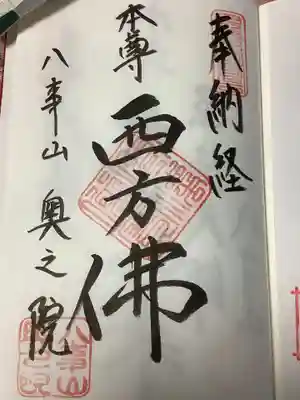 奉納経
本尊
西方佛
八事山 奥之院